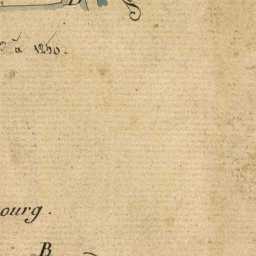 à 1250.
ourg.
B